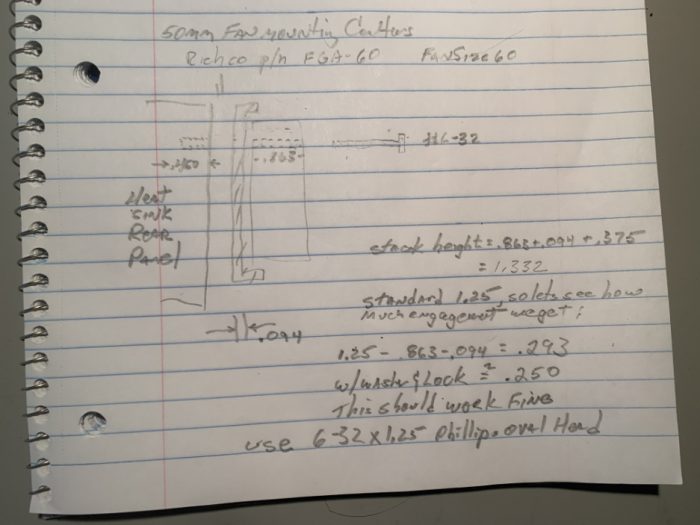 50mm FAN MOUNTING Centers
Richco p/n FGA-60 FanSize 60
.863
#6-32
Heat
SINK
REAR
PANEL
stack height = .863 + .094 + .375
= 1.332
.094
STANDARD 1.25, so lets see how
Much engagement we get;
1.25 - .863 - .094 = .293
w/washr & Lock ≅ .250
This should work Fine
use 6-32 x 1.25 Phillip. oval Head